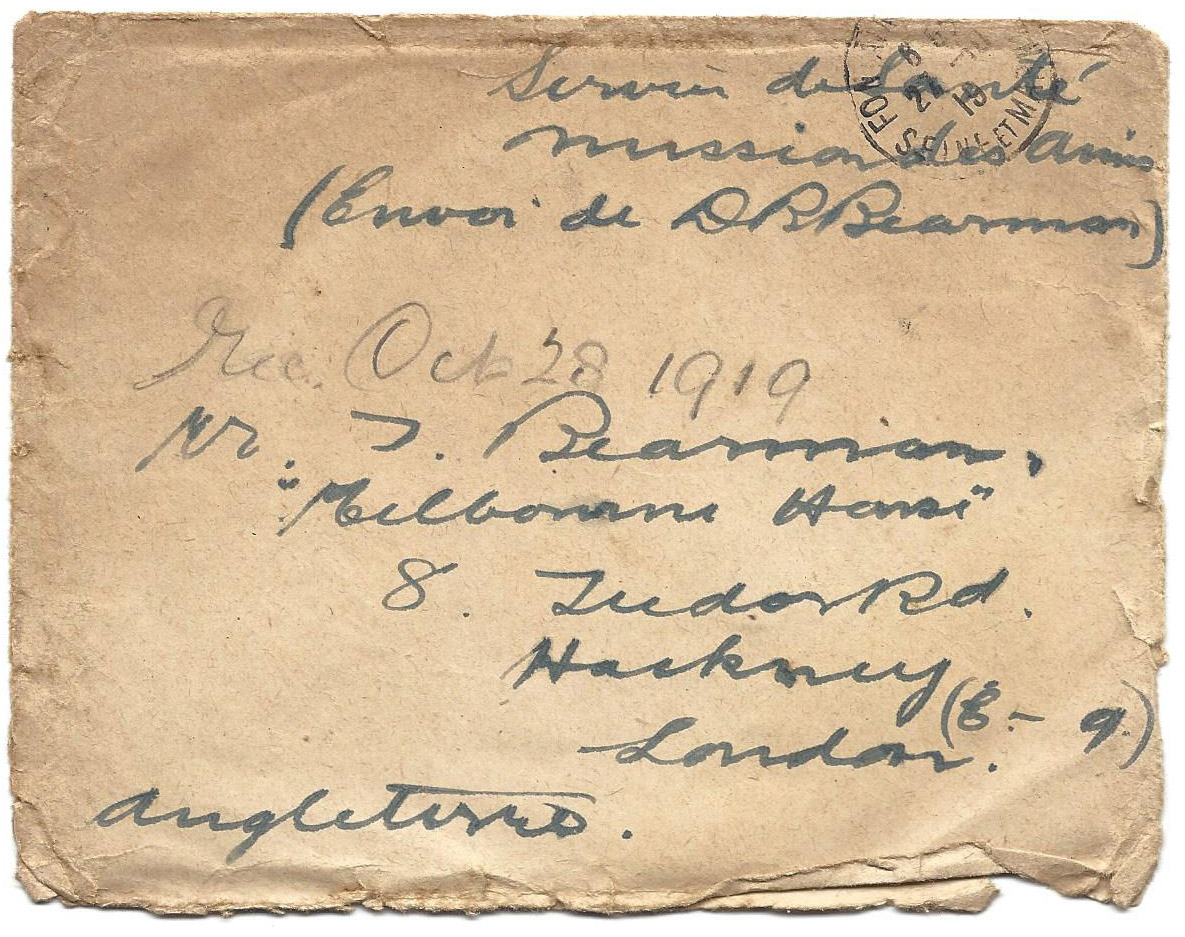 Service de Santé
mission des Amis
(Envoi de D R Bearman)
FON
SEINE ET M
Rec. Oct 28 1919
Mr. T. Bearman,
"Melbourne House"
8. Tudor Rd.
Hackney
(E - 9.)
London.
Angleterre.